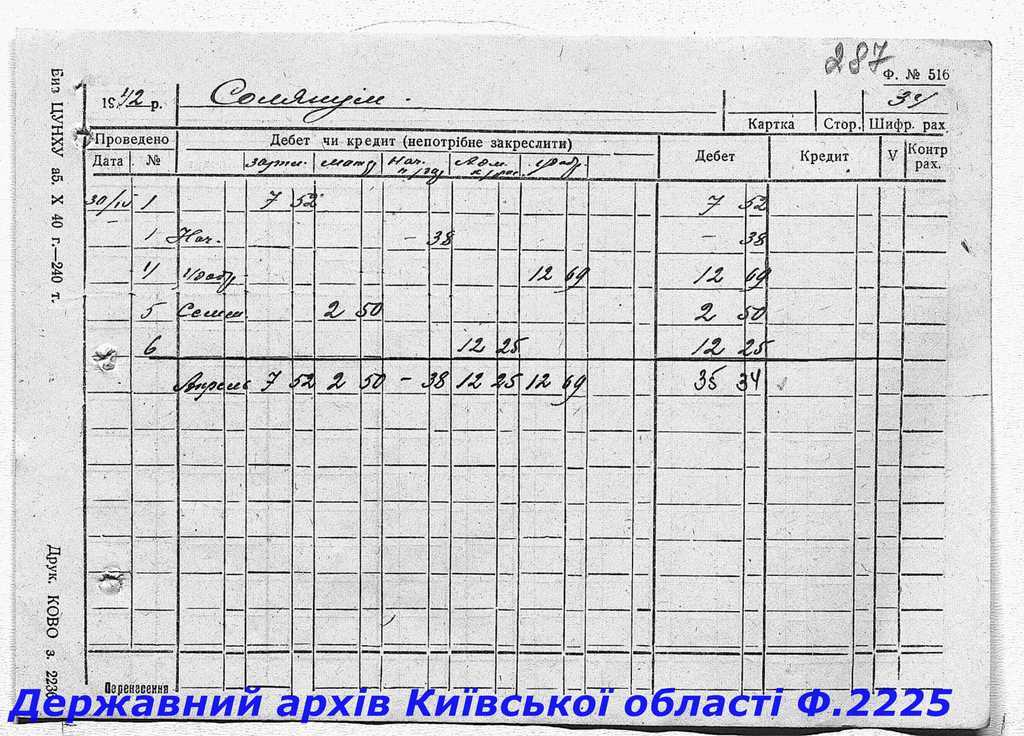 287
Ф. № 516
1942 р. Солянум. 34
Картка Стор. Шифр. рах
Проведено Дебет чи кредит (непотрібне закреслити) Дебет Кредит V Контр рах.
Дата №
30/IV 1 7 52 7 52
1 Нач. - 38 - 38
4 12 69 12 69
5 2 50 2 50
6 12 25 12 25
Апрель 7 52 2 50 - 38 12 25 12 69 35 34
Перенесення
Виз ЦУНХУ аб. X 40 г.—240 т.
Друк. КОВО з. 223
Державний архів Київської області Ф.2225